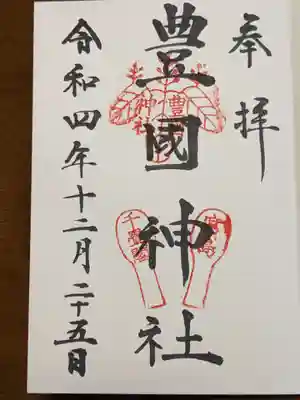 奉拝
豊國神社
豊國
神社
宮島
千畳閣
令和四年十二月二十五日